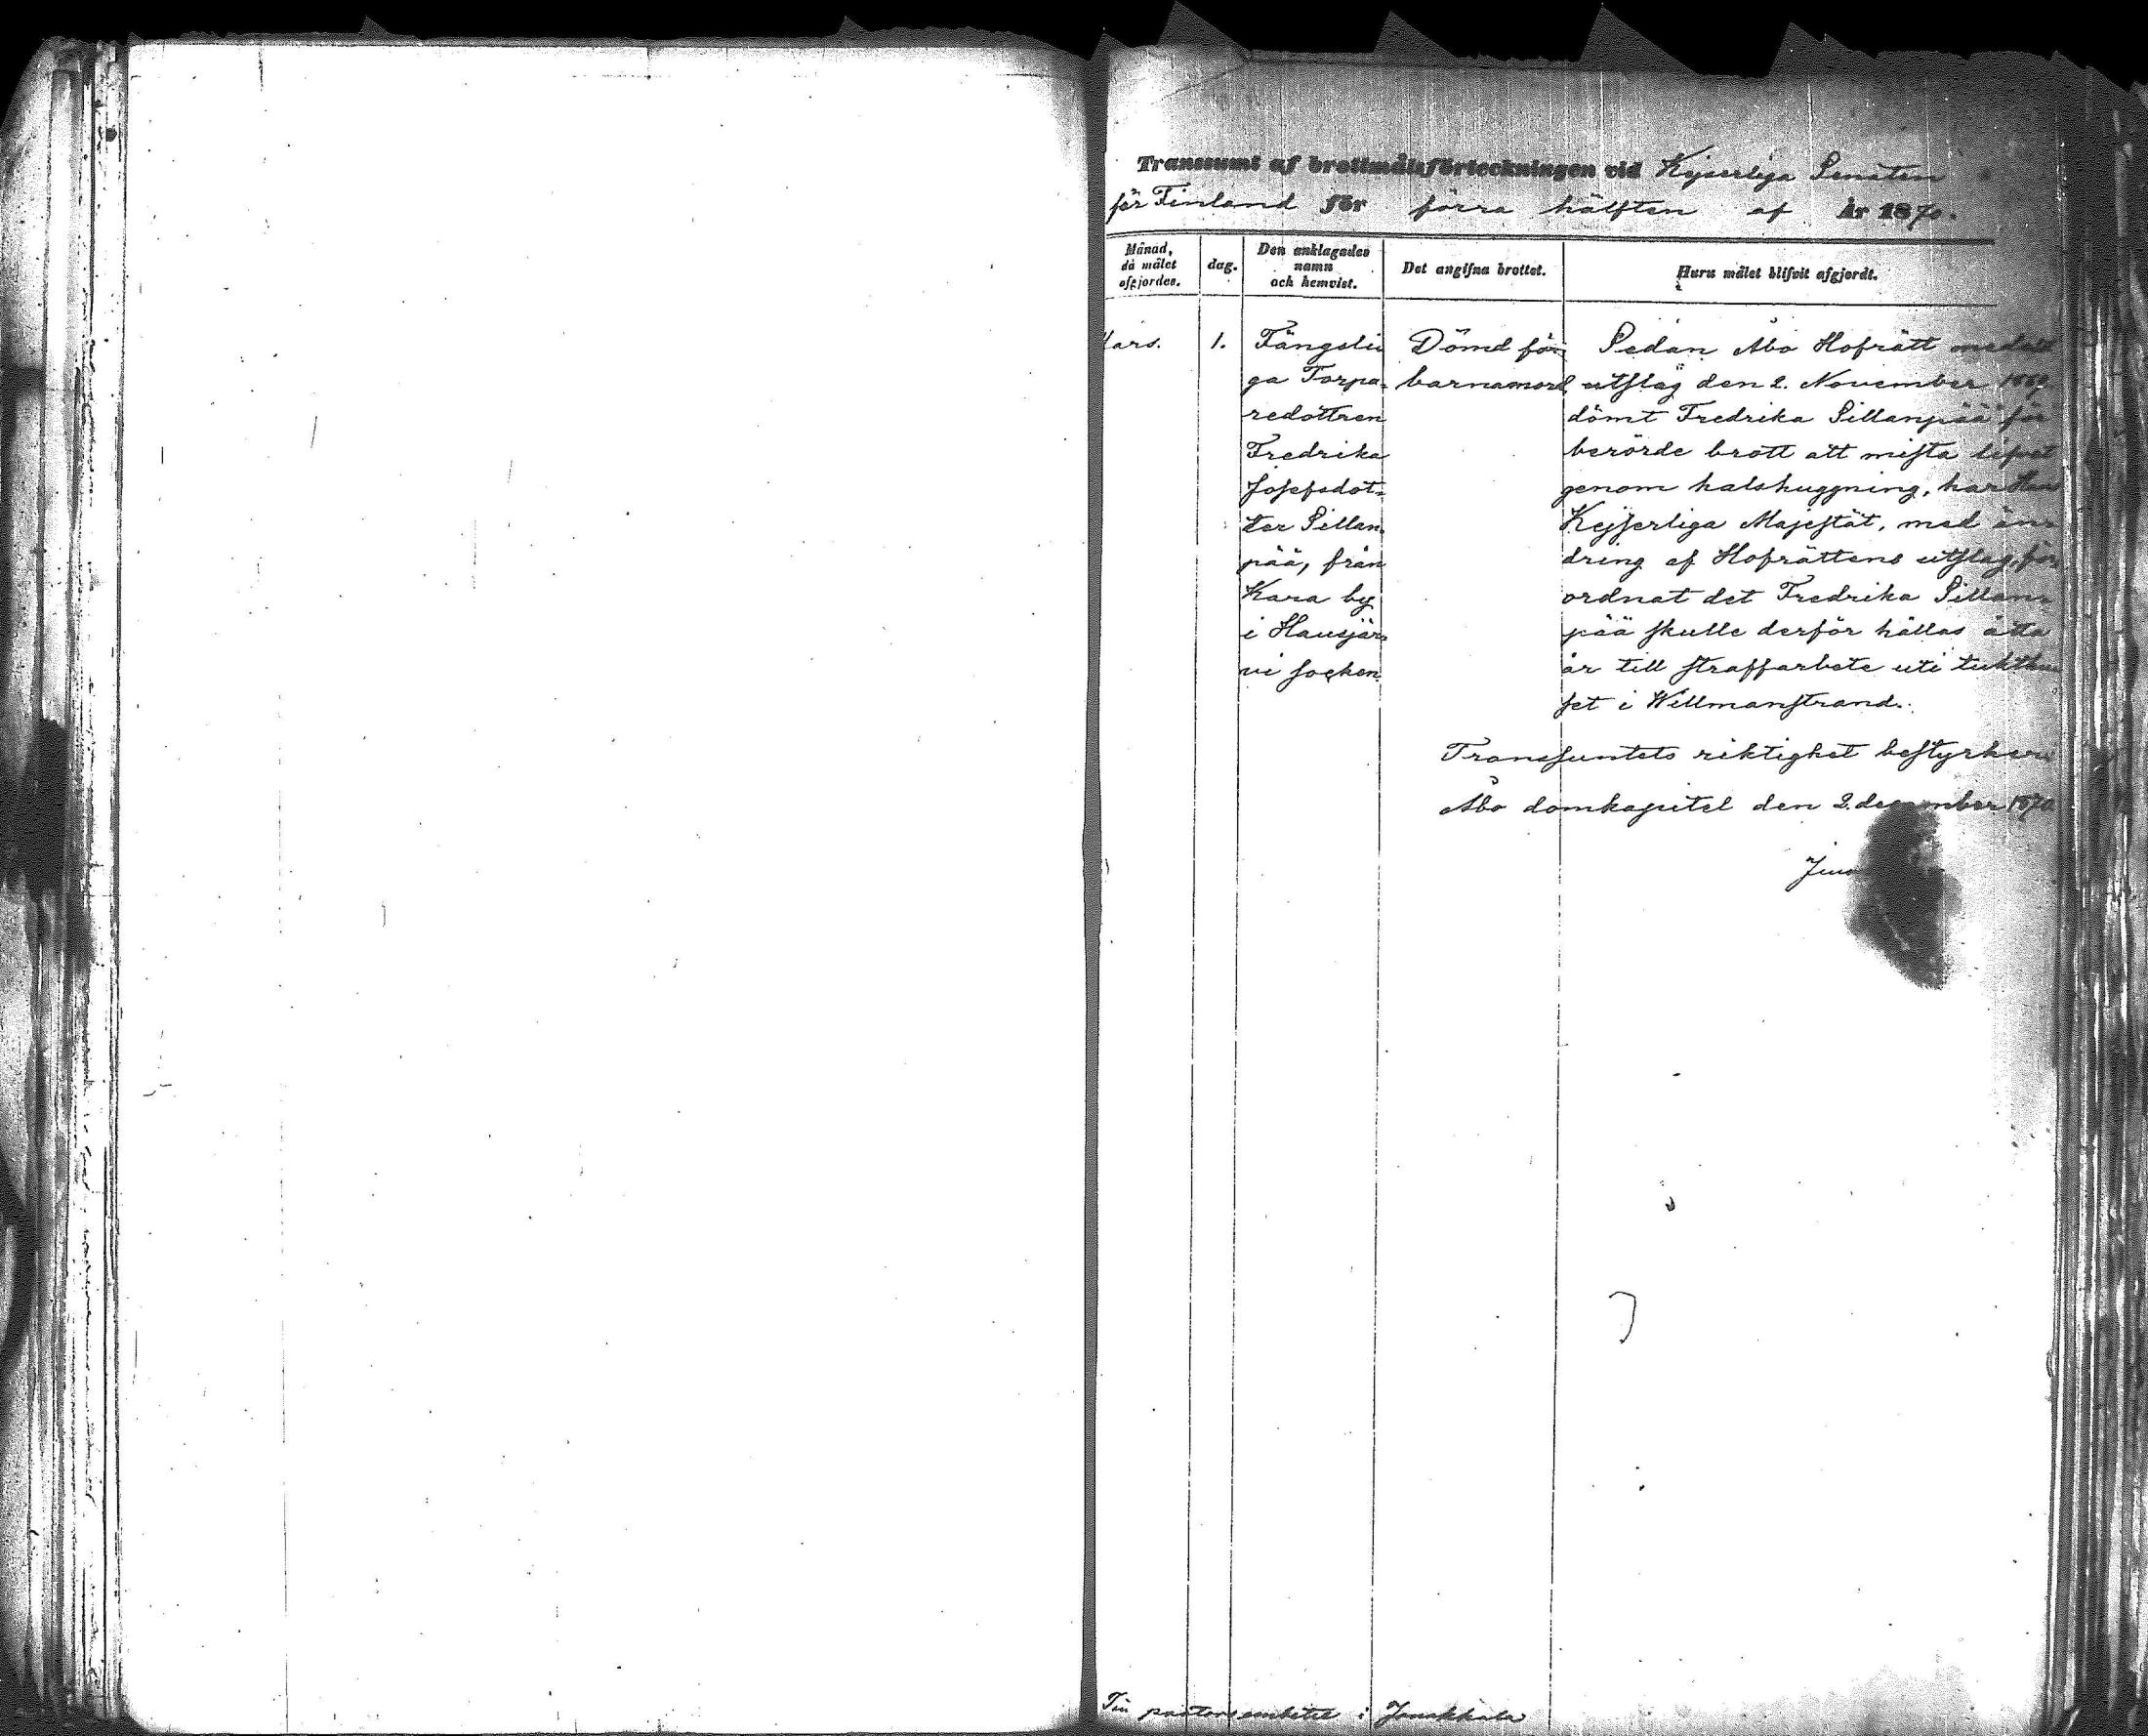 Transsumt af brottmålsförteckningen vid Kejserliga Senaten
för Finland för förra hälften af År 1870.
Månad,
då målet
afgjordes.
dag.
Den anklagades
namn
och hemvist.
Det angifna brottet.
Huru målet blifvit afgjordt.
Mars.
1.
Fängsli
ga Torpa-
redottren
Fredrika
Josefsdot-
ter Sillan-
pää, från
Kara by
i Hausjär-
vi socken.
Dömd för
barnamord
Sedan Åbo Hofrätt medelst
utslag den 2. November 1869
dömt Fredrika Sillanpää för
berörde brott att mista lifvet
genom halshuggning, har Hans
Kejserliga Majestät, med än-
dring af Hofrättens utslag, för-
ordnat det Fredrika Sillan-
pää skulle derför hållas åtta
år till straffarbete uti tukthu
set i Willmanstrand.
Transsumtets riktighet bestyrker:
Åbo domkapitel den 2. december 1870
Till pastorsembetet i Janakkala